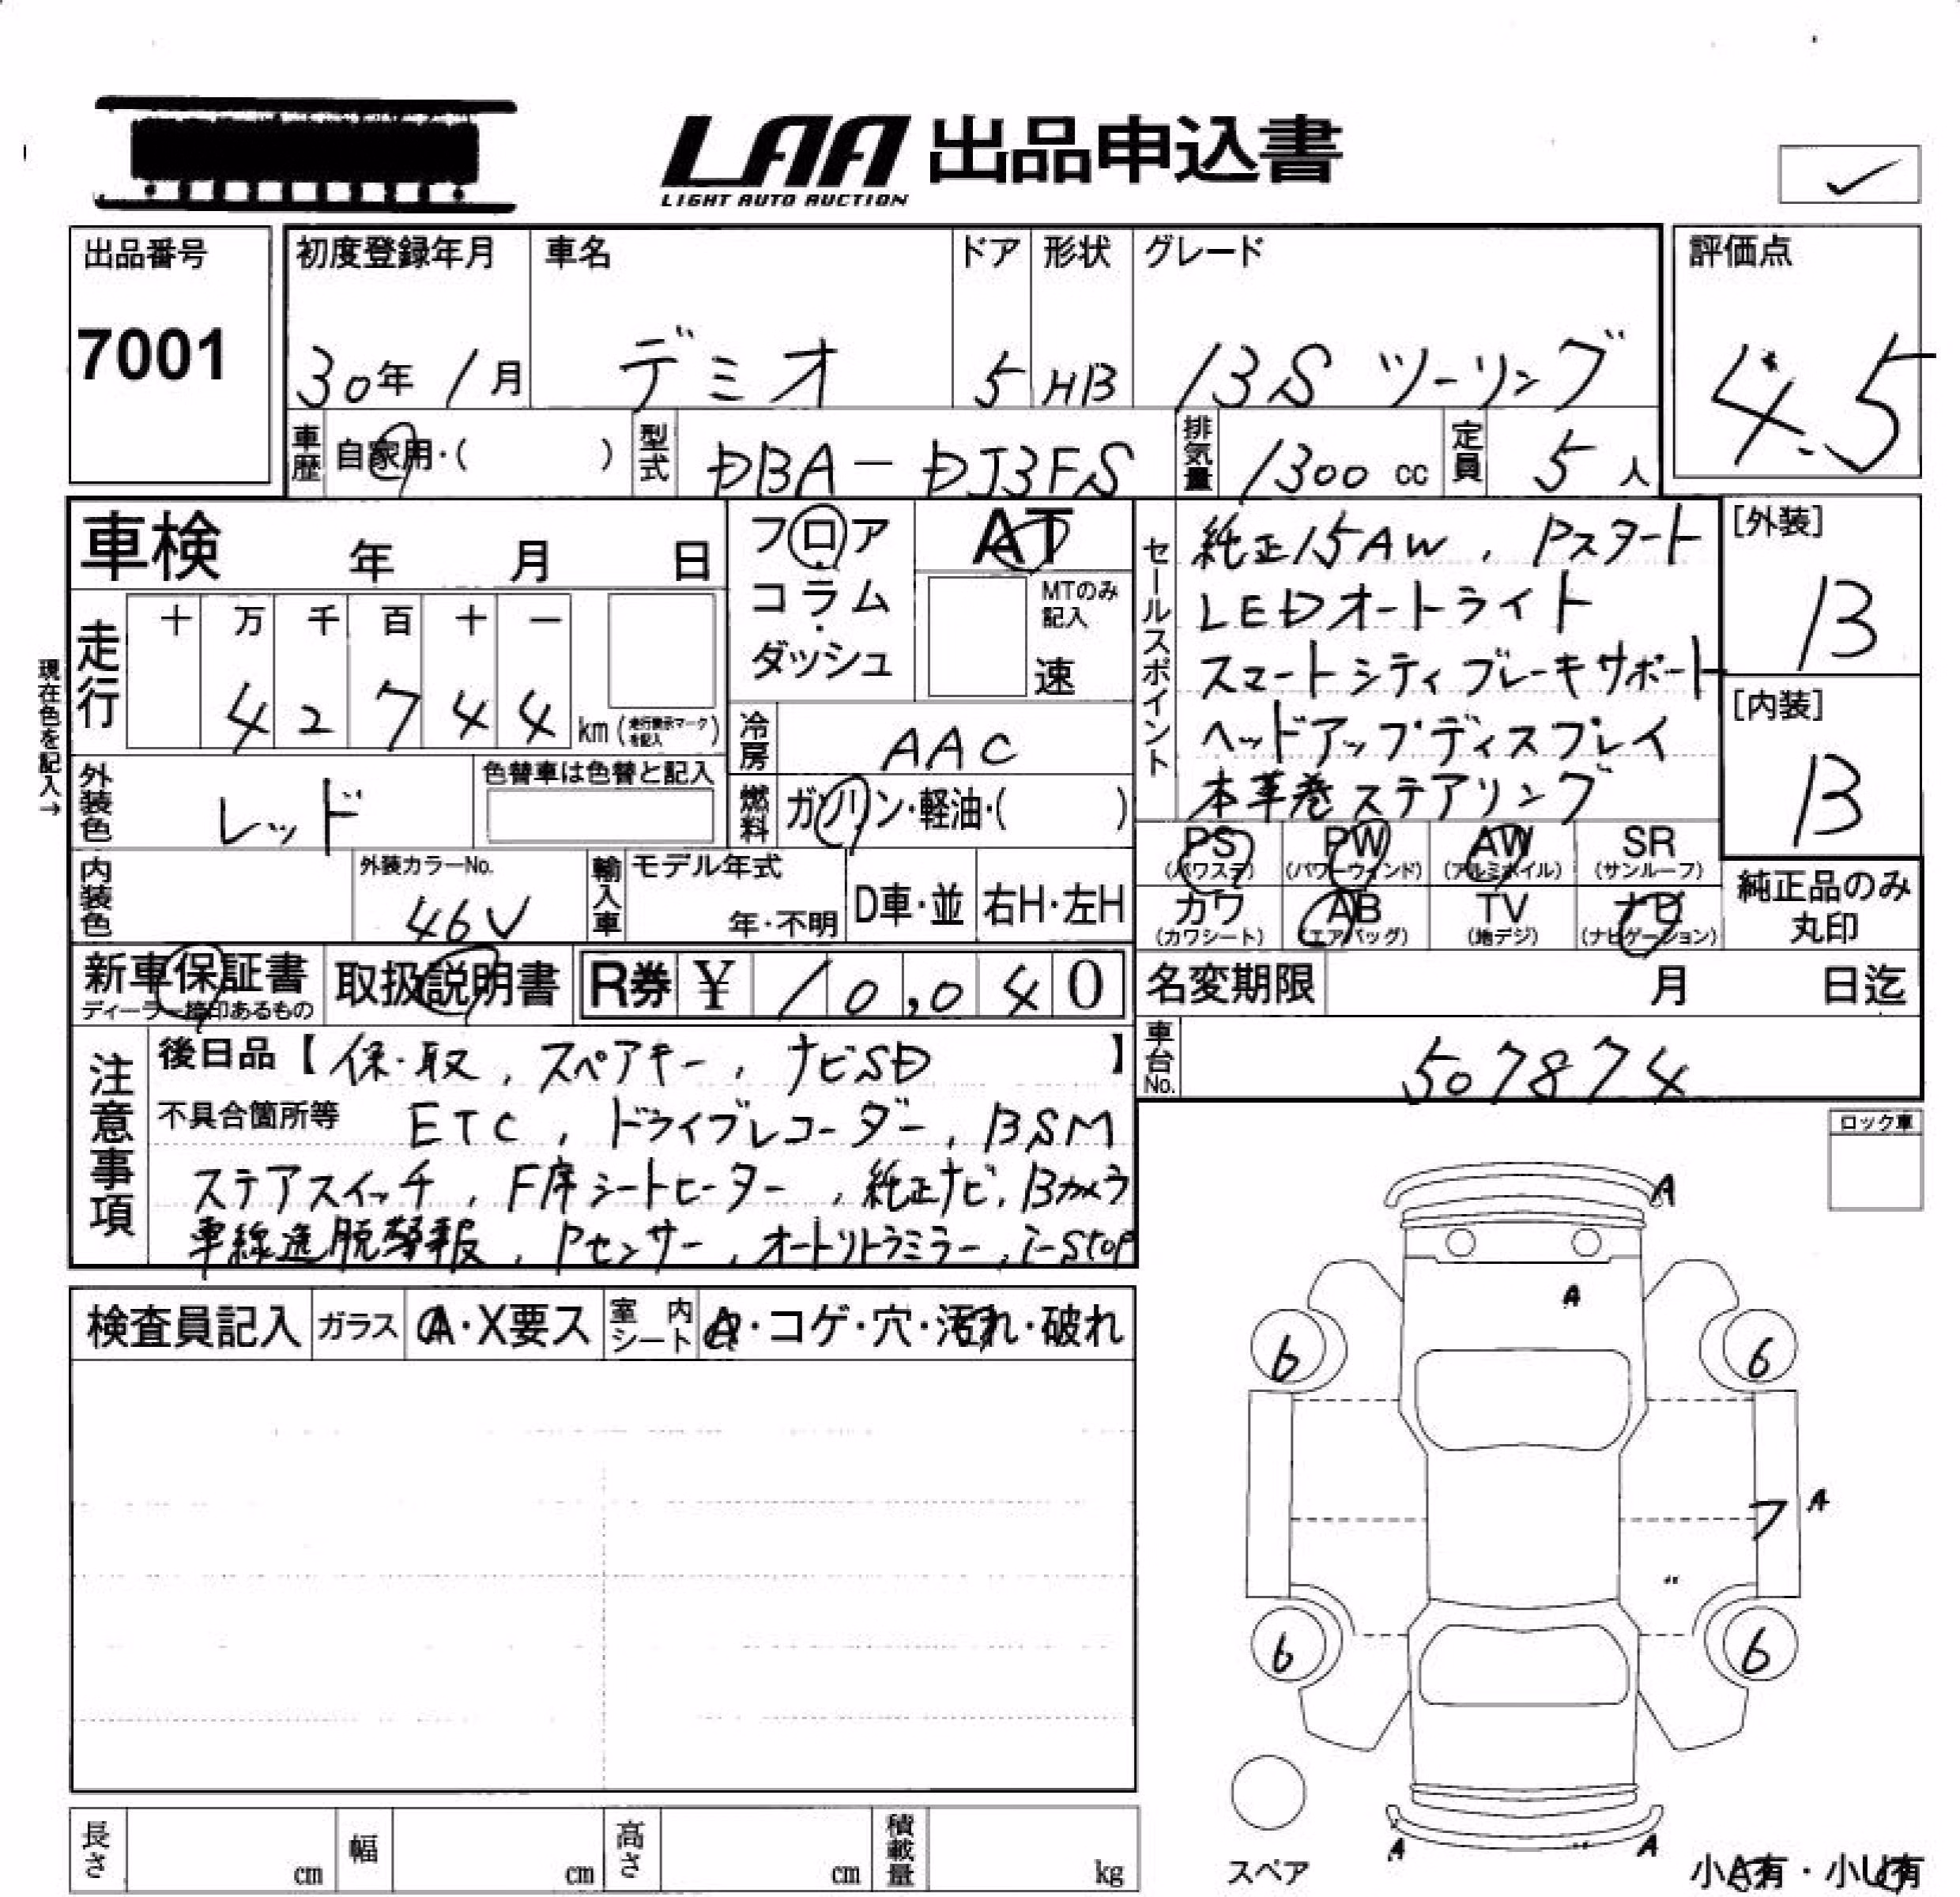 LAA 出品申込書
LIGHT AUTO AUCTION
出品番号
7001
初度登録年月 車名 ドア 形状 グレード
30年 1月 デミオ 5 HB 13S ツーリング
評価点
4.5
車歴 自家用・( ) 型式 DBA-DJ3FS 排気量 1300 cc 定員 5人
車検 年 月 日
フロア
コラム
・
ダッシュ
AT
MTのみ
記入
速
走行
十 万 千 百 十 一
4 2 7 4 4 km (走行表示マークを記入)
現在色を記入→
冷房 AAC
外装色 レッド
色替車は色替と記入
燃料 ガソリン・軽油・( )
内装色
外装カラーNo.
46V
輸入車 モデル年式
年・不明
D車・並 右H・左H
新車保証書
ディーラー捺印あるもの
取扱説明書
R券 ¥ 10,040
セールスポイント
純正15AW, Pスタート
LEDオートライト
スマートシティブレーキサポート
ヘッドアップディスプレイ
本革巻ステアリング
[外装]
B
[内装]
B
PS PW AW SR
(パワステ) (パワーウィンド) (アルミホイル) (サンルーフ)
カワ AB TV ナビ
(カワシート) (エアバッグ) (地デジ) (ナビゲーション)
純正品のみ
丸印
名変期限 月 日迄
車台No. 507874
注意事項
後日品【保・取, スペアキー, ナビSD】
不具合箇所等 ETC, ドライブレコーダー, BSM
ステアスイッチ, F席シートヒーター, 純正ナビ, Bカメラ
車線逸脱警報, Pセンサー, オートリトラミラー, i-stop
ロック車
検査員記入 ガラス A・X要ス 室内シート A・コゲ・穴・汚れ・破れ
A
A
6 6
フ A
〃
6 6
A 〃 A
スペア
小A有・小U有
長さ cm 幅 cm 高さ cm 積載量 kg